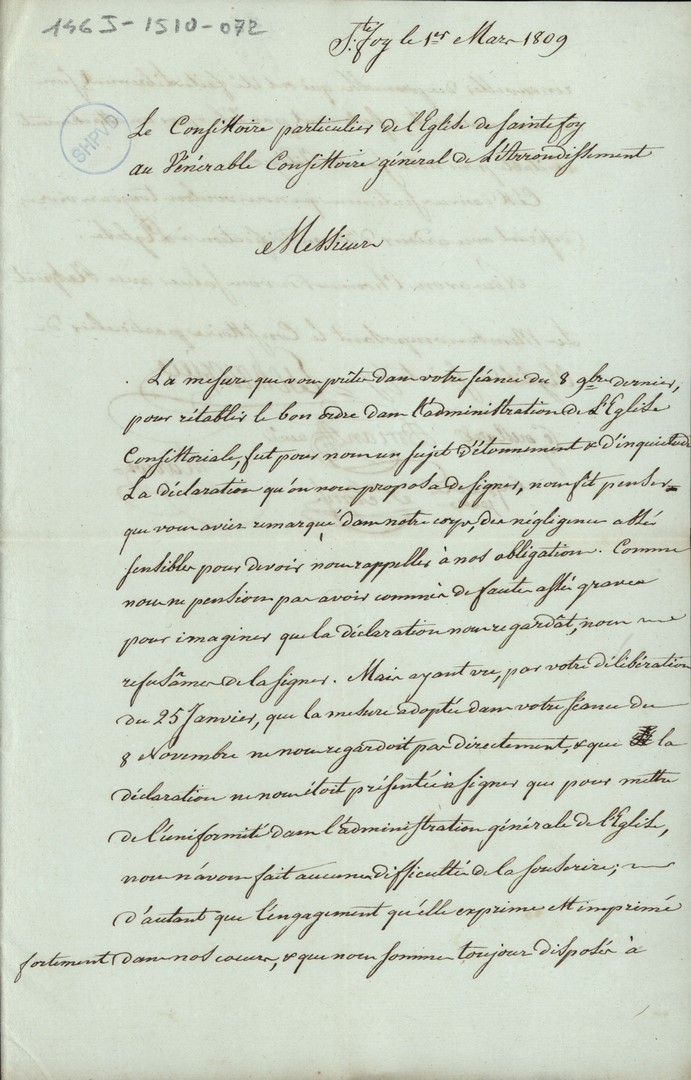 146J-1510-072
Ste. Foy le 1er Mars 1809
SHPVD
Le Consistoire particulier de l'Eglise de Sainte foy
au Vénérable Consistoire général de L'Arrondissement
Messieurs
La mesure que vous prîtes dans votre séance du 8 9bre dernier,
pour rétablir le bon ordre dans l'administration de L'Eglise
Consistoriale, fut pour nous un sujet d'étonnement & d'inquietude
La déclaration qu'on nous proposa de signer, nous fit penser
que vous aviez remarqué dans notre corps, des négligences assés
sensibles pour devoir nous rappeller à nos obligations. Comme
nous ne pensions pas avoir commis de fautes assés graves
pour imaginer que la déclaration nous regardât, nous
refusâmes de la signer. Mais ayant vu, par votre délibération
du 25 Janvier, que la mesure adoptée dans votre séance du
8 Novembre ne nous regardoit pas directement, & que la
déclaration ne nous étoit présentée à signer que pour mettre
de l'uniformité dans l'administration générale de l'Eglise,
nous n'avons fait aucune difficulté de la souscrire;
d'autant que l'engagement qu'elle exprime est imprimé
fortement dans nos coeurs, & que nous sommes toujours disposés à